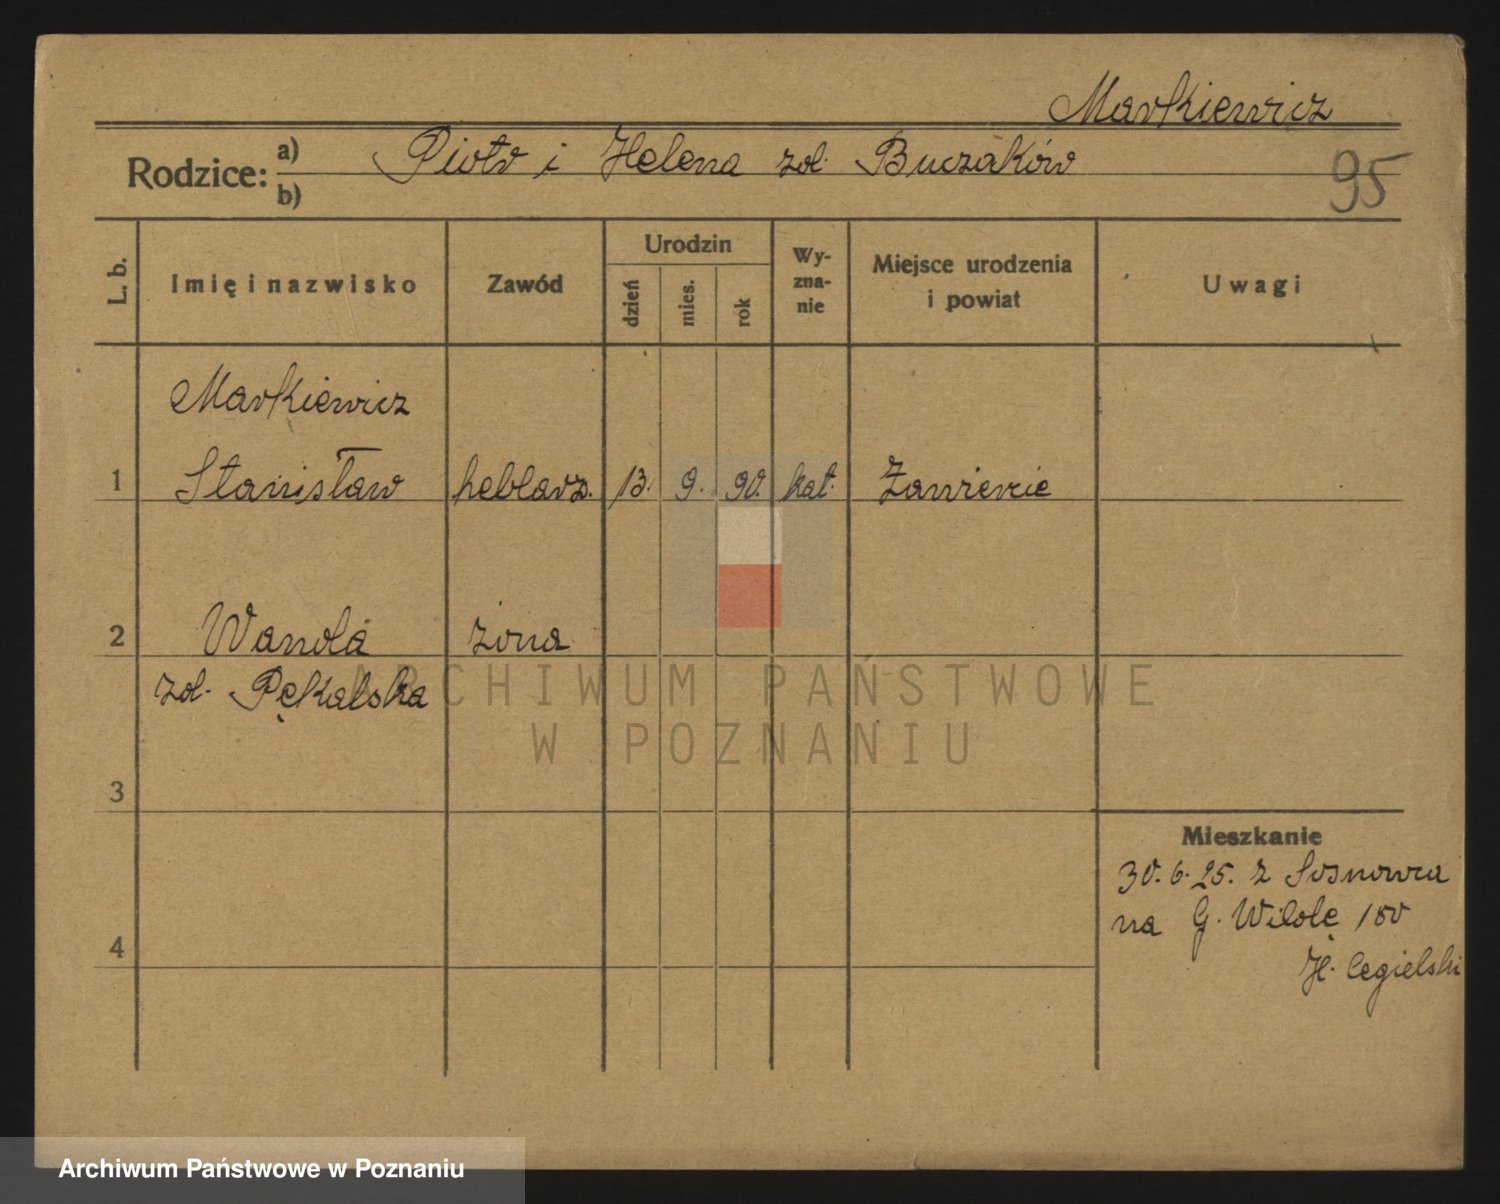 Markiewicz
Rodzice: a) Piotr i Helena zd. Buczaków
b)
95
L. b.
Imię i nazwisko
Zawód
Urodzin
dzień
mies.
rok
Wy-
zna-
nie
Miejsce urodzenia
i powiat
Uwagi
Markiewicz
1 Stanisław heblarz. 13. 9. 90. kat. Zawiercie
2 Wanda żona
zd. Pękalska
3
4
Mieszkanie
30. 6. 25. z Sosnowca
na G. Wildę 180
H. Cegielski
ARCHIWUM PAŃSTWOWE
W POZNANIU
Archiwum Państwowe w Poznaniu